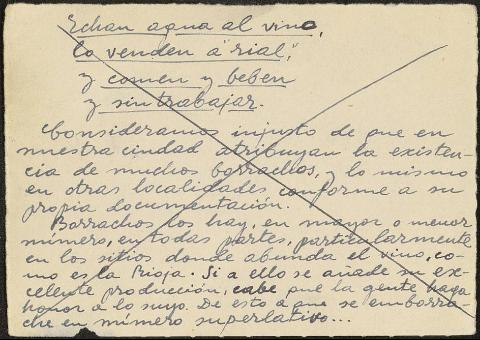 Echan agua al vino,
lo venden a "rial",
y comen y beben
y sin trabajar.
Consideramos injusto de que en
nuestra ciudad atribuyan la existen-
cia de muchos borrachos, y lo mismo
en otras localidades conforme a su
propia documentación.
Borrachos los hay, en mayor o menor
número, en todas partes, particularmente
en los sitios donde abunda el vino, co-
mo es la Rioja. Si a ello se añade su ex-
celente producción, cabe que la gente haga
honor a lo suyo. De esto a que se emborra-
che en número superlativo...